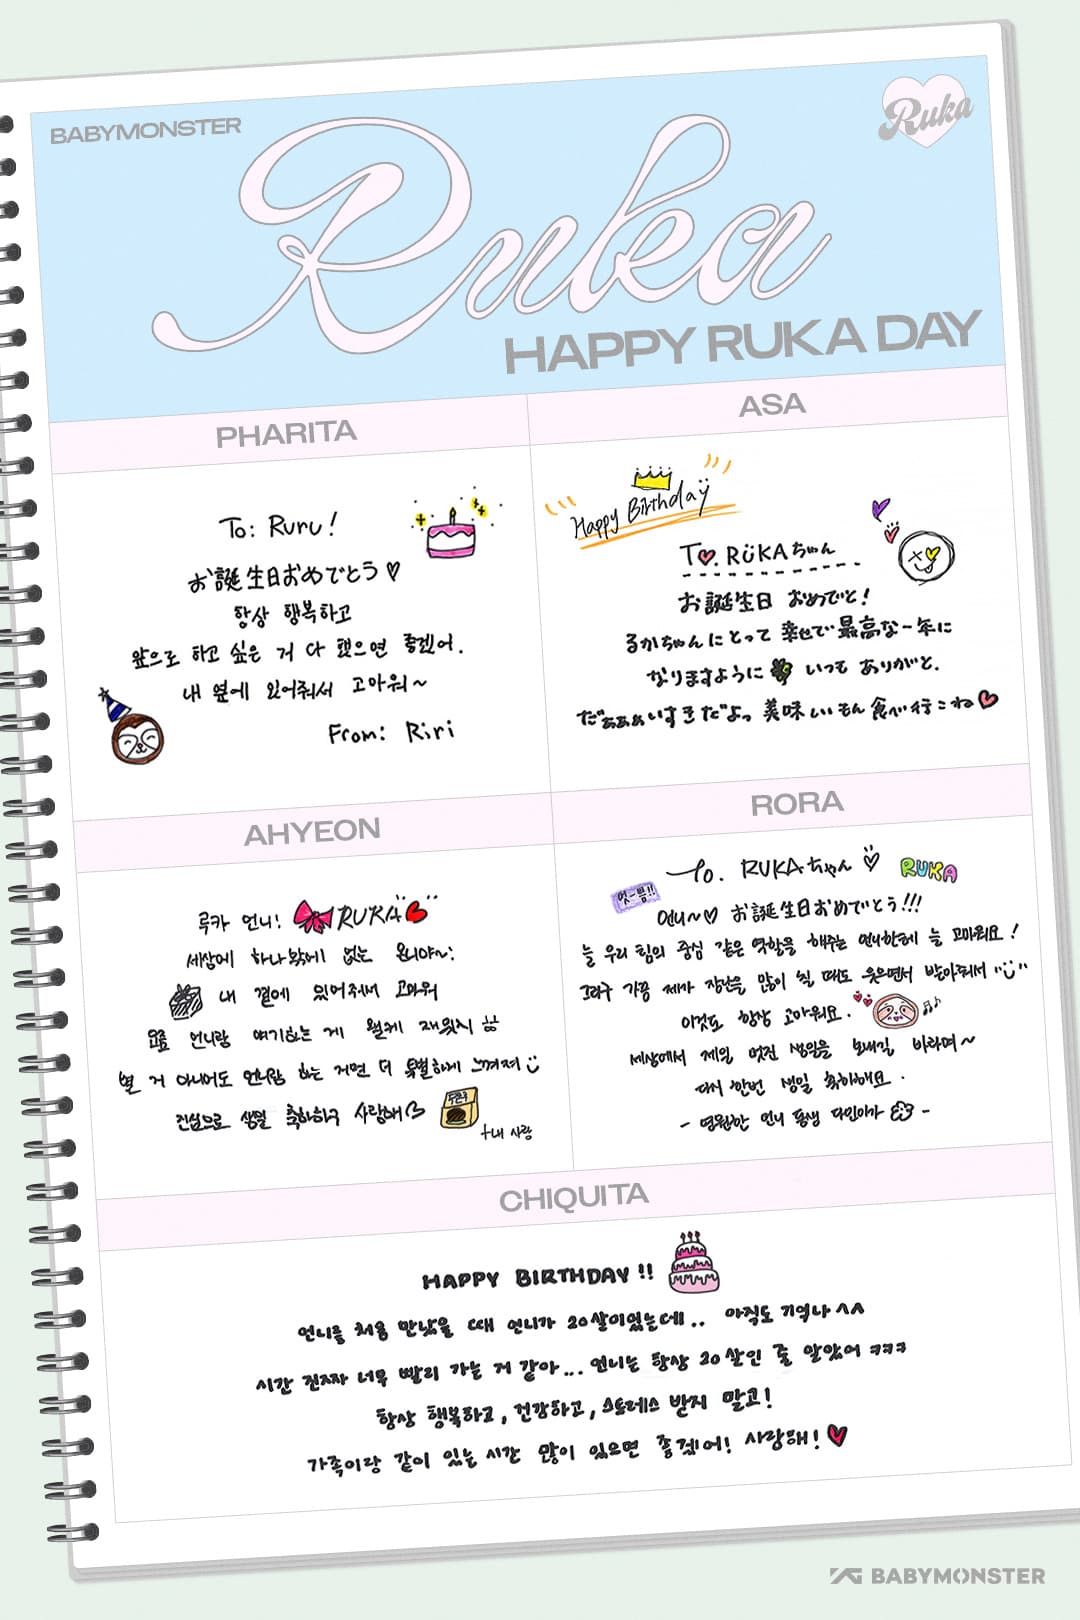 BABYMONSTER
Ruka
Ruka
HAPPY RUKA DAY
PHARITA
To: Ruru!
お誕生日おめでとう♡
항상 행복하고
앞으로 하고 싶은 거 다 했으면 좋겠어.
내 옆에 있어줘서 고마워~
From: Riri
ASA
Happy Birthday
To. RUKAちゃん
お誕生日 おめでと!
るかちゃんにとって 幸せで最高な一年に
なりますように いつも ありがと.
だぁぁぁいすきだよっ 美味しいもん食べ行こね♡
AHYEON
루카 언니! RUKA
세상에 하나밖에 없는 언니야~!
내 곁에 있어줘서 고마워
요즘 언니랑 얘기하는 게 왤케 재밌지
별 거 아니어도 언니랑 하는 거면 더 특별하게 느껴져
진심으로 생일 축하하구 사랑해
두쫀쿠
+내 사랑
RORA
To. RUKAちゃん ♡ RUKA
언니~♡ お誕生日おめでとう!!!
늘 우리 팀의 중심 같은 역할을 해주는 언니한테 늘 고마워요!
그리구 가끔 제가 장난을 많이 칠 때도 웃으면서 받아줘서
이것도 항상 고마워요.
세상에서 제일 멋진 생일을 보내길 바라며~
다시 한번 생일 축하해요.
- 영원한 언니 동생 다인이가 -
CHIQUITA
HAPPY BIRTHDAY!!
언니를 처음 만났을 때 언니가 20살이었는데.. 아직도 기억나^^
시간 진짜 너무 빨리 가는 거 같아... 언니는 항상 20살인 줄 알았어 ㅋㅋㅋ
항상 행복하고, 건강하고, 스트레스 받지 말고!
가족이랑 같이 있는 시간 많이 있으면 좋겠어! 사랑해!♥
YG BABYMONSTER